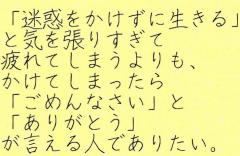 「迷惑をかけずに生きる」
と気を張りすぎて
疲れてしまうよりも、
かけてしまったら
「ごめんなさい」と
「ありがとう」
が言える人でありたい。